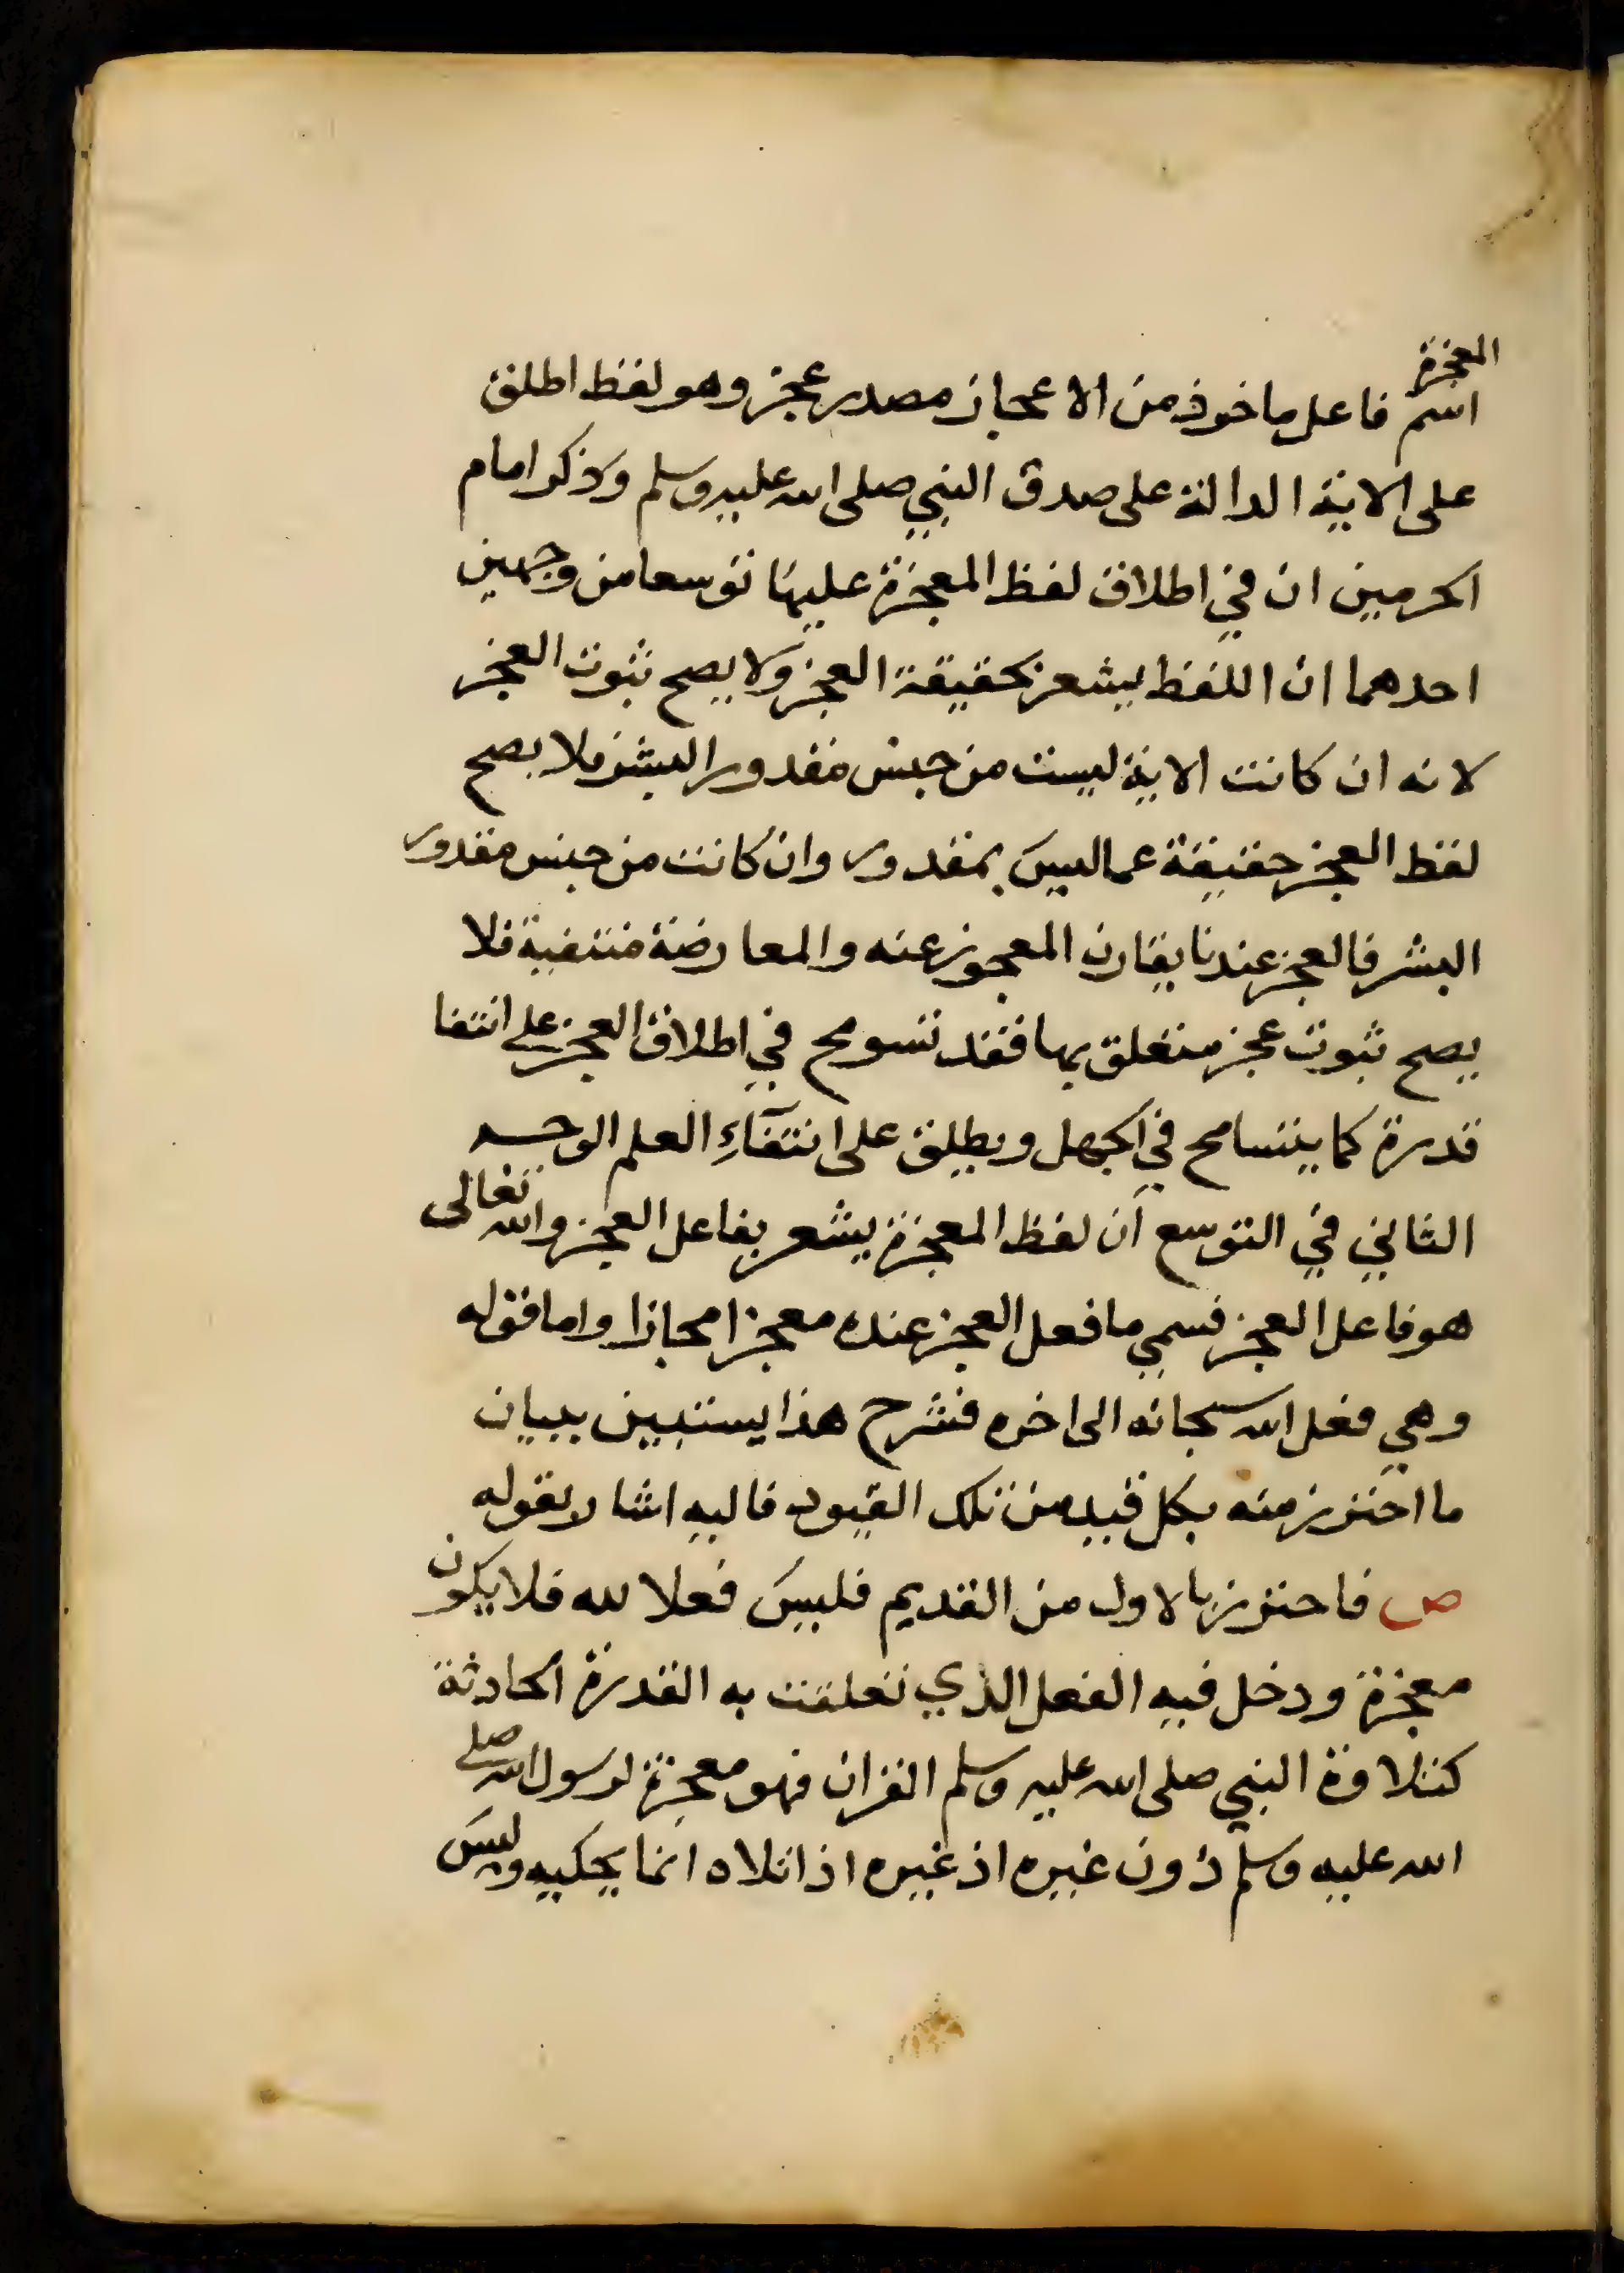 المعجزة
اسم فاعل ماخوذ من الاعجاز مصدر عجز وهو لفظ اطلق
على الاية الدالة على صدق النبي صلى الله عليه وسلم وذكر امام
الحرمين ان في اطلاق لفظ المعجزة عليها توسعا من وجهين
احدهما ان اللفظ يشعر بحقيقة العجز ولا يصح ثبوت العجز
لانه ان كانت الاية ليست من جنس مقدور البشر فلا يصح
لفظ العجز حقيقة عما ليس بمقدور وان كانت من جنس مقدور
البشر فالعجز عندنا يقارن المعجوز عنه والمعارضة منتفية فلا
يصح ثبوت عجز متعلق بها فقد تسومح في اطلاق العجز على انتفا
قدرة كما يتسامح في الجهل ويطلق على انتفآءِ العلم الوجه
الثاني في التوسع ان لفظ المعجزة يشعر بفاعل العجز والله تعالى
هو فاعل العجز فسمي ما فعل العجز عنده معجزا مجازا واما قوله
وهي فعل الله سبحانه الى اخره فشرح هذا يستبين ببيان
ما احترز منه بكل قيد من تلك القيود فاليه اشار بقوله
ص فاحترز بالاول من القديم فليس فعلا لله فلا يكون
معجزة ودخل فيه الفعل الذي تعلقت به القدرة الحادثة
كتلاوة النبي صلى الله عليه وسلم القران فهو معجزة لرسول الله صلى
الله عليه وسلم دون غيره اذ غيره اذا تلاه انما يحكيه وليس